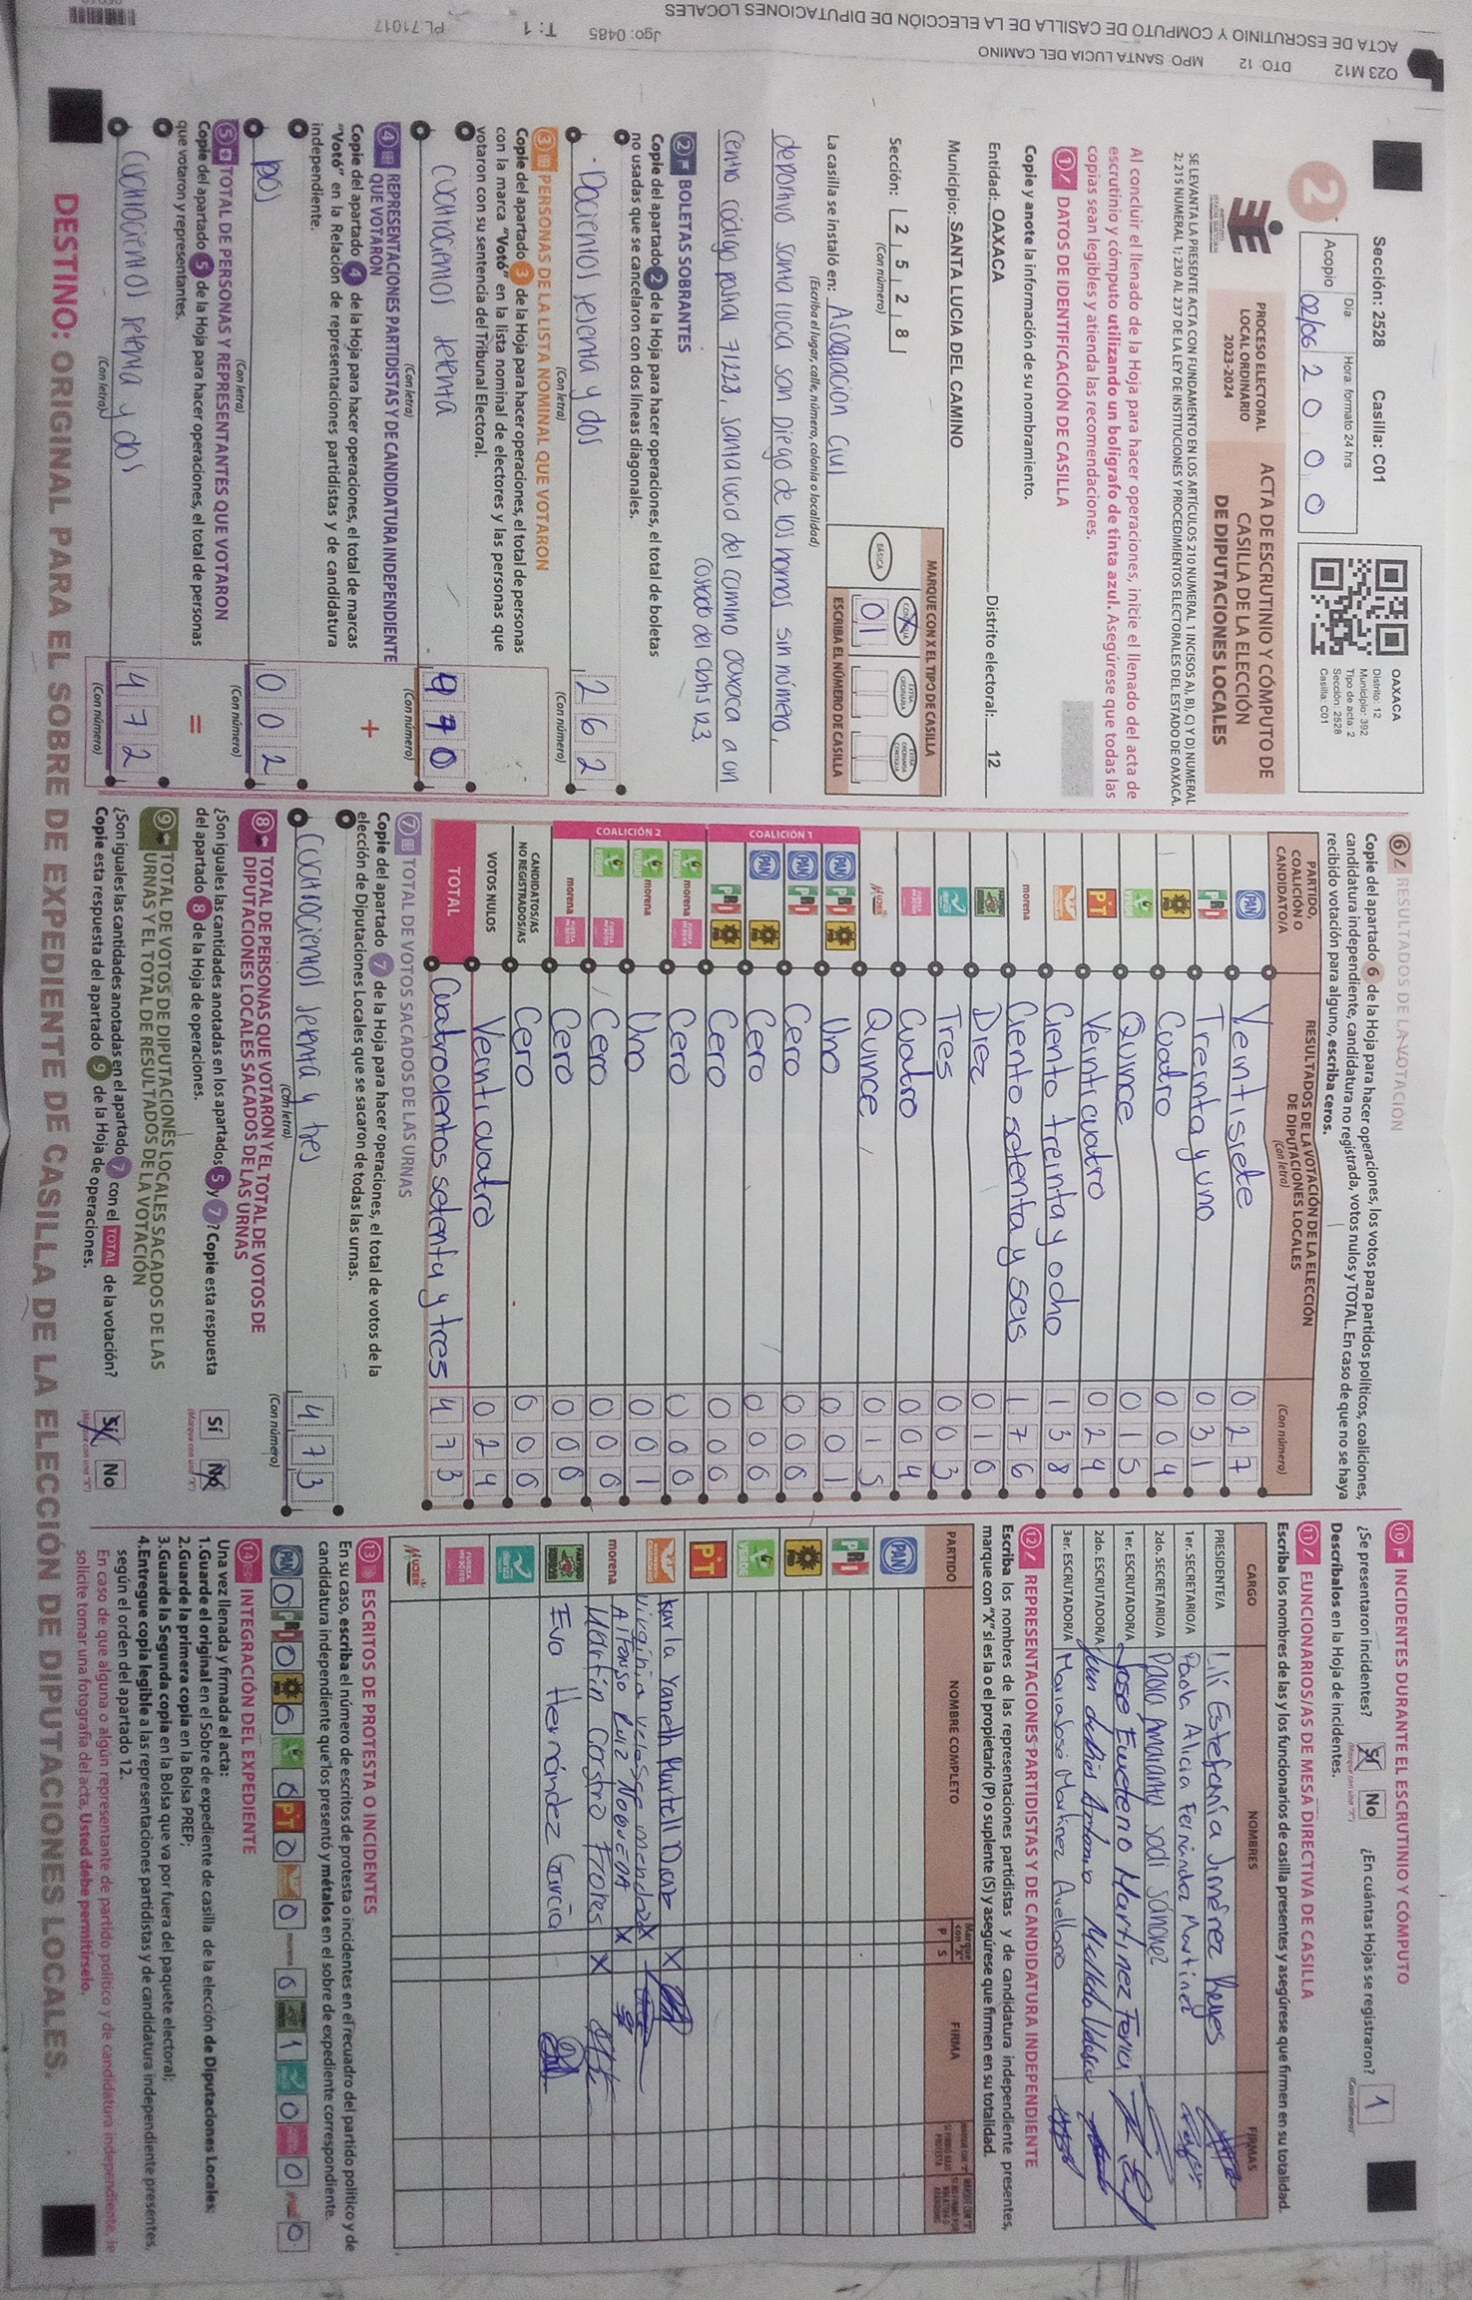 023 M12 DTO. 12 MPO. SANTA LUCIA DEL CAMINO
ACTA DE ESCRUTINIO Y COMPUTO DE CASILLA DE LA ELECCIÓN DE DIPUTACIONES LOCALES
Jgo: 0485 T: 1 PL 71017
Sección: 2528 Casilla: C01
2
Día Hora: formato 24 hrs
Acopio 02/06 2 0 0 0
OAXACA
Distrito: 12
Municipio: 392
Tipo de acta: 2
Sección: 2528
Casilla: C01
PROCESO ELECTORAL
LOCAL ORDINARIO
2023-2024
ACTA DE ESCRUTINIO Y CÓMPUTO DE
CASILLA DE LA ELECCIÓN
DE DIPUTACIONES LOCALES
SE LEVANTA LA PRESENTE ACTA CON FUNDAMENTO EN LOS ARTÍCULOS 210 NUMERAL 1 INCISOS A), B), C) Y D) NUMERAL
2; 215 NUMERAL 1; 230 AL 237 DE LA LEY DE INSTITUCIONES Y PROCEDIMIENTOS ELECTORALES DEL ESTADO DE OAXACA.
Al concluir el llenado de la Hoja para hacer operaciones, inicie el llenado del acta de
escrutinio y cómputo utilizando un bolígrafo de tinta azul. Asegúrese que todas las
copias sean legibles y atienda las recomendaciones.
1 DATOS DE IDENTIFICACIÓN DE CASILLA
Copie y anote la información de su nombramiento.
Entidad: OAXACA Distrito electoral: 12
Municipio: SANTA LUCIA DEL CAMINO
Sección: 2 5 2 8
(Con número)
MARQUE CON X EL TIPO DE CASILLA
BÁSICA
ESCRIBA EL NÚMERO DE CASILLA
01
La casilla se instaló en: Asociación Civil
(Escriba el lugar, calle, número, colonia o localidad)
deportiva santa lucia san Diego de los hornos sin número,
centro código postal 71228, santa lucia del camino oaxaca a un
costado del cbtis 123.
2 BOLETAS SOBRANTES
Copie del apartado 2 de la Hoja para hacer operaciones, el total de boletas
no usadas que se cancelaron con dos líneas diagonales.
Docientos sesenta y dos 262
(Con letra) (Con número)
3 PERSONAS DE LA LISTA NOMINAL QUE VOTARON
Copie del apartado 3 de la Hoja para hacer operaciones, el total de personas
con la marca "Votó" en la lista nominal de electores y las personas que
votaron con su sentencia del Tribunal Electoral.
470
(Con letra) (Con número)
4 REPRESENTACIONES PARTIDISTAS Y DE CANDIDATURA INDEPENDIENTE
QUE VOTARON
Copie del apartado 4 de la Hoja para hacer operaciones, el total de marcas
"Votó" en la Relación de representaciones partidistas y de candidatura
independiente.
+
DOS 002
(Con letra) (Con número)
5 TOTAL DE PERSONAS Y REPRESENTANTES QUE VOTARON
Copie del apartado 5 de la Hoja para hacer operaciones, el total de personas
que votaron y representantes.
=
setenta y dos 472
(Con letra) (Con número)
6 RESULTADOS DE LA VOTACIÓN
Copie del apartado 6 de la Hoja para hacer operaciones, los votos para partidos políticos, coaliciones,
candidatura independiente, candidatura no registrada, votos nulos y TOTAL. En caso de que no se haya
recibido votación para alguno, escriba ceros.
PARTIDO,
COALICIÓN O
CANDIDATO/A
RESULTADOS DE LA VOTACIÓN DE LA ELECCIÓN
DE DIPUTACIONES LOCALES
(Con letra) (Con número)
PAN Ventisiete 027
PRI Treinta y uno 031
PRD Cuatro 004
VERDE Quince 015
PT Veinticuatro 024
Ciento treinta y ocho 138
morena Ciento setenta y seis 176
Diez 010
Tres 003
Cuatro 004
MUJER Quince 015
COALICIÓN 1
PAN PRI PRD Uno 001
PAN PRI Cero 000
PAN PRD Cero 000
PRI PRD Cero 000
COALICIÓN 2
VERDE morena Cero 000
VERDE morena Uno 001
VERDE Cero 000
morena Cero 000
CANDIDATOS/AS
NO REGISTRADOS/AS Cero 000
VOTOS NULOS Veenticuatro 024
TOTAL Cuatrocientos setenta y tres 473
7 TOTAL DE VOTOS SACADOS DE LAS URNAS
Copie del apartado 7 de la Hoja para hacer operaciones, el total de votos de la
elección de Diputaciones Locales que se sacaron de todas las urnas.
setenta y tres 473
(Con letra) (Con número)
8 TOTAL DE PERSONAS QUE VOTARON Y EL TOTAL DE VOTOS DE
DIPUTACIONES LOCALES SACADOS DE LAS URNAS
¿Son iguales las cantidades anotadas en los apartados 5 y 7? Copie esta respuesta
del apartado 8 de la Hoja de operaciones.
Sí No
9 TOTAL DE VOTOS DE DIPUTACIONES LOCALES SACADOS DE LAS
URNAS Y EL TOTAL DE RESULTADOS DE LA VOTACIÓN
¿Son iguales las cantidades anotadas en el apartado 7 con el TOTAL de la votación?
Copie esta respuesta del apartado 9 de la Hoja de operaciones.
Sí No
10 INCIDENTES DURANTE EL ESCRUTINIO Y CÓMPUTO
¿Se presentaron incidentes? Sí No ¿En cuántas Hojas se registraron? 1
Descríbalos en la Hoja de incidentes.
11 FUNCIONARIOS/AS DE MESA DIRECTIVA DE CASILLA
Escriba los nombres de las y los funcionarios de casilla presentes y asegúrese que firmen en su totalidad.
CARGO NOMBRES FIRMAS
PRESIDENTE/A Lili Estefania Jiménez Reyes
1er. SECRETARIO/A Paola Alicia Fernández Martínez
2do. SECRETARIO/A Paola Amairany sodi sánchez
1er. ESCRUTADOR/A José Eucterio Martinez Feria
2do. ESCRUTADOR/A Antonio
3er. ESCRUTADOR/A Martinez
12 REPRESENTACIONES PARTIDISTAS Y DE CANDIDATURA INDEPENDIENTE
Escriba los nombres de las representaciones partidistas y de candidatura independiente presentes,
marque con "X" si es la o el propietario (P) o suplente (S) y asegúrese que firmen en su totalidad.
PARTIDO NOMBRE COMPLETO P S FIRMA
PAN
PRI
PRD
VERDE
PT
Karla Yaneth Diaz X
X
morena Alfonso Ruiz X
Martin Castro Flores X
Evo Hernández García
MUJER
13 ESCRITOS DE PROTESTA O INCIDENTES
En su caso, escriba el número de escritos de protesta o incidentes en el recuadro del partido político y de
candidatura independiente que los presentó y métalos en el sobre de expediente correspondiente.
PAN 0 PRI 0 0 0 PT 0 0 0 1 0 0 0
14 INTEGRACIÓN DEL EXPEDIENTE
Una vez llenada y firmada el acta:
1.Guarde el original en el Sobre de expediente de casilla de la elección de Diputaciones Locales;
2.Guarde la primera copia en la Bolsa PREP;
3.Guarde la Segunda copia en la Bolsa que va por fuera del paquete electoral;
4.Entregue copia legible a las representaciones partidistas y de candidatura independiente presentes,
según el orden del apartado 12.
En caso de que alguna o algún representante de partido político y de candidatura independiente, le
solicite tomar una fotografía del acta, Usted debe permitírselo.
DESTINO: ORIGINAL PARA EL SOBRE DE EXPEDIENTE DE CASILLA DE LA ELECCIÓN DE DIPUTACIONES LOCALES.